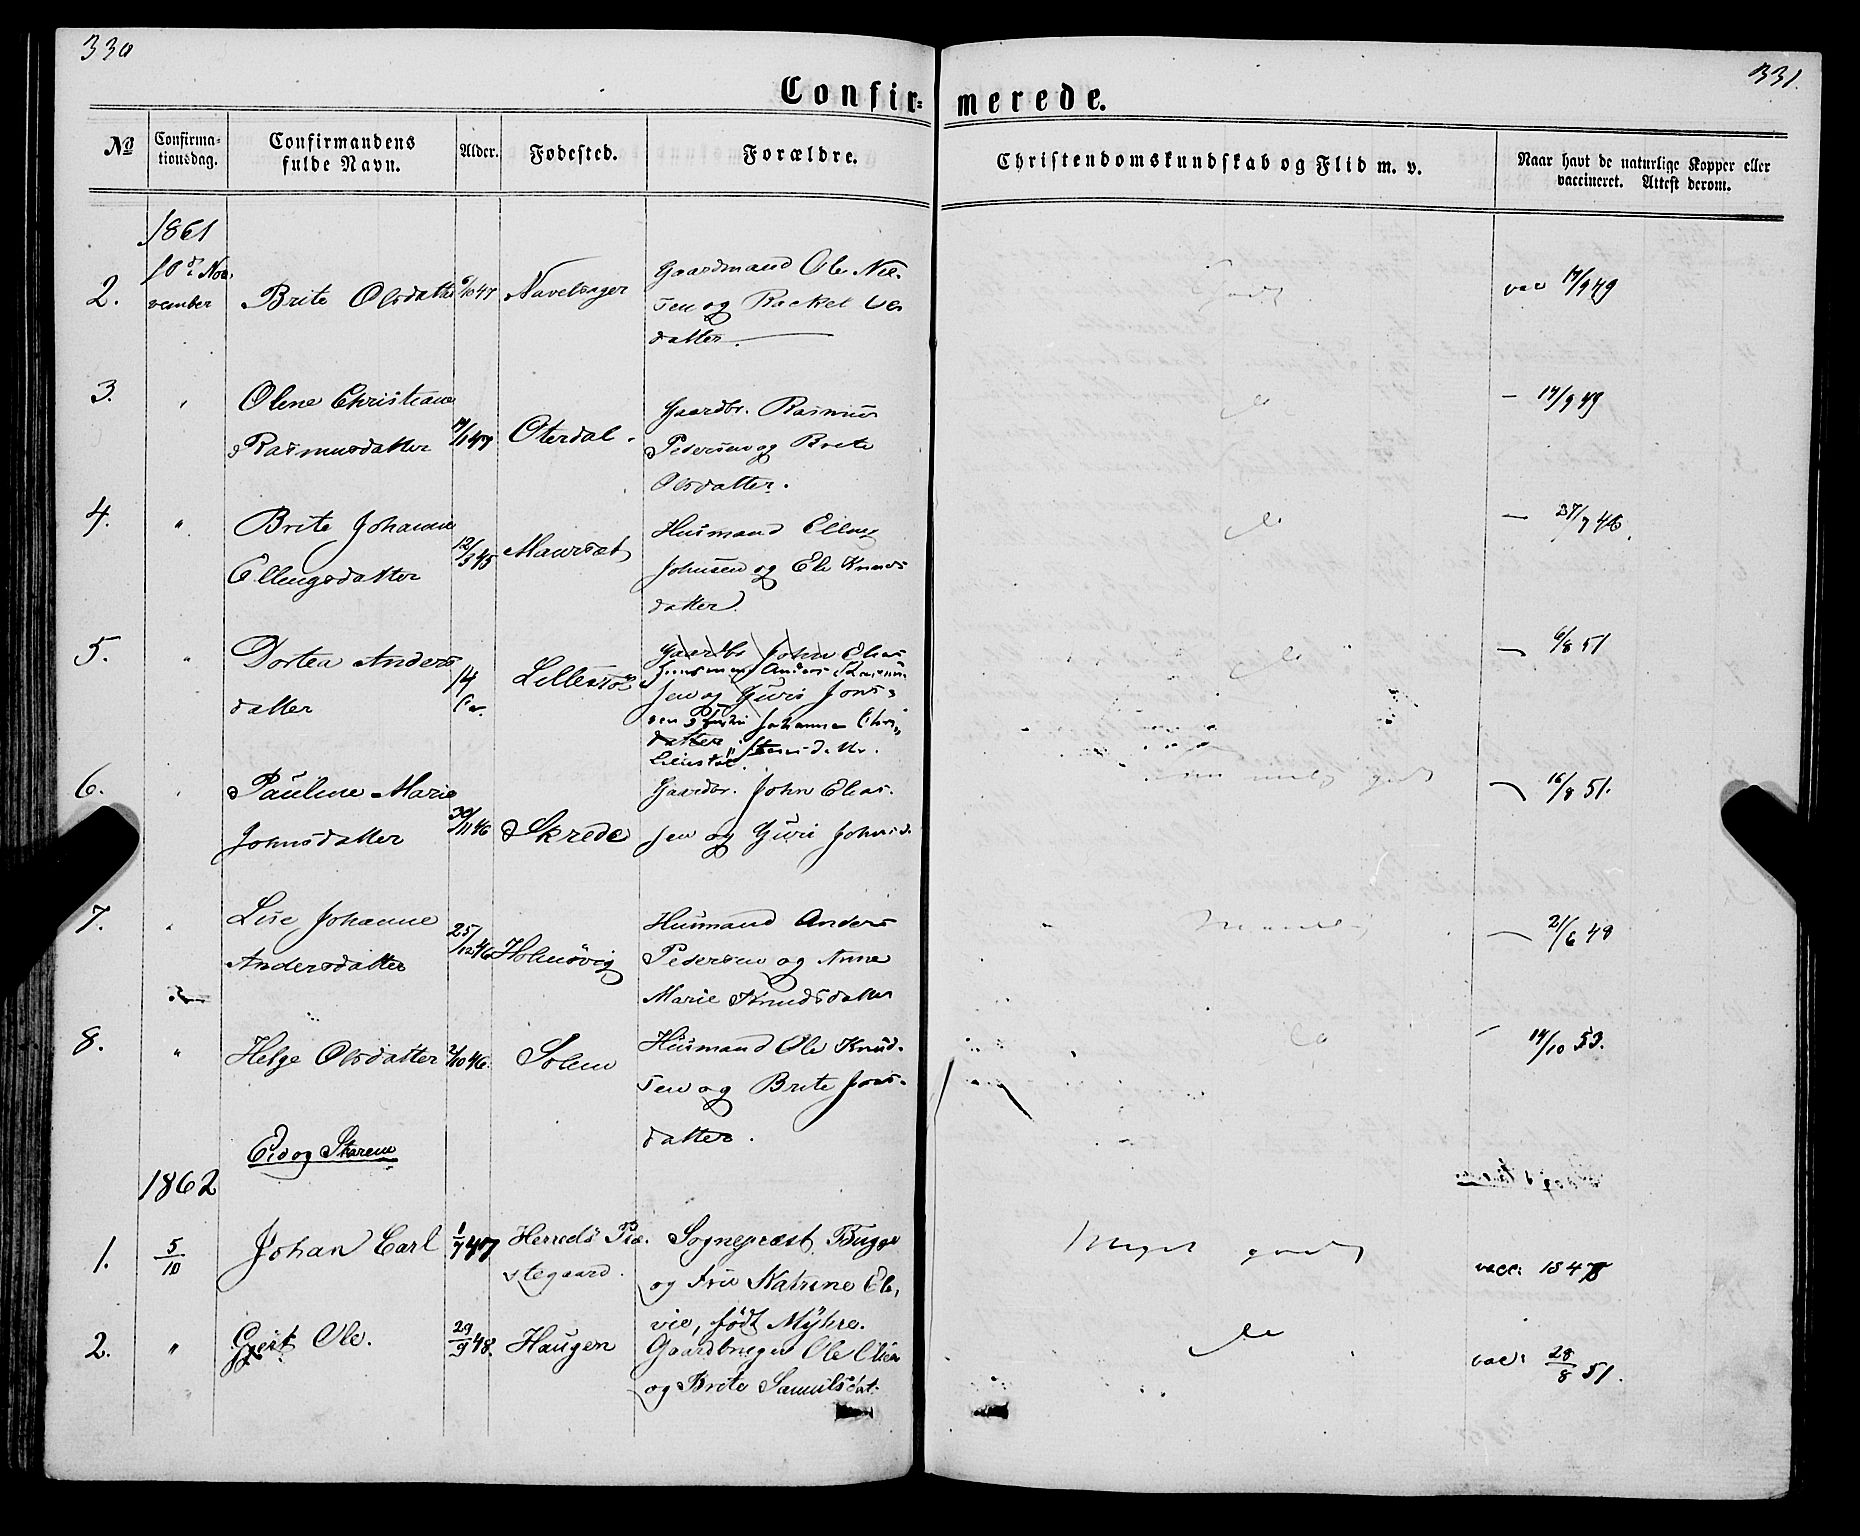 330
331.
Confir=merede.
No
Confirma-
tionsdag.
Confirmandens
fulde Navn.
Alder.
Fødested.
Forældre.
Christendomskundskab og Flid m. v.
Naar havt de naturlige Kopper eller
vaccineret. Attest derom.
1861
2.
10de No-
vember
Brite Olsdatter
6/10 47
Navelsager
Gaardmand Ole Niel-
sen og Rachel
datter.
Godt
vac 17/9 49
3.
"
Olene Christiane
Rasmusdatter
Oterdal.
Gaardbr. Rasmus
Pedersen og Brite
Olsdatter.
do
— 17/9 49
4.
"
Brite Johanne
Ellengsdatter
12/3 45
Maursæt
Husmand Elling
Johnsen og Eli Knuds
datter.
do
— 27/7 46.
5.
"
Dortea Anders
datter
14
Ca.
Lillestøl
Gaardbr John Elias
Husmand Anders Rasmus
sen og Guri Jons-
sen Johanne Chri
datter. stensdatter.
Lillestøl.
do
— 6/8 51
6.
"
Pauline Marie
Johnsdatter
30/11 46
Skrede
Gaardbr. John Elias-
sen og Guri Johnsd.
godt
— 16/8 51.
7.
"
Lise Johanne
Andersdatter
25/12 46
Holmøvig
Husmand Anders
Pedersen og Anne
Marie Knudsdatter
— 21/6 48
8.
"
Helge Olsdatter
2/10 46.
Solem
Husmand Ole Knud-
sen og Brite Jons-
datter.
do
— 14/10 53.
Eid og Skarem
1862
1.
5/10
Johan Carl
1/7 47
Herreds Præ-
stegaard.
Sognepræst Bugge
og Fru Katrine El-
vie, født Myhre.
Meget godt
vacc: 1848
2.
"
Gjert Ole.
29/9 48.
Haugen
Gaardbruger Ole Olsen
og Brite Samuelsdat.
do
vac: 28/8 51.